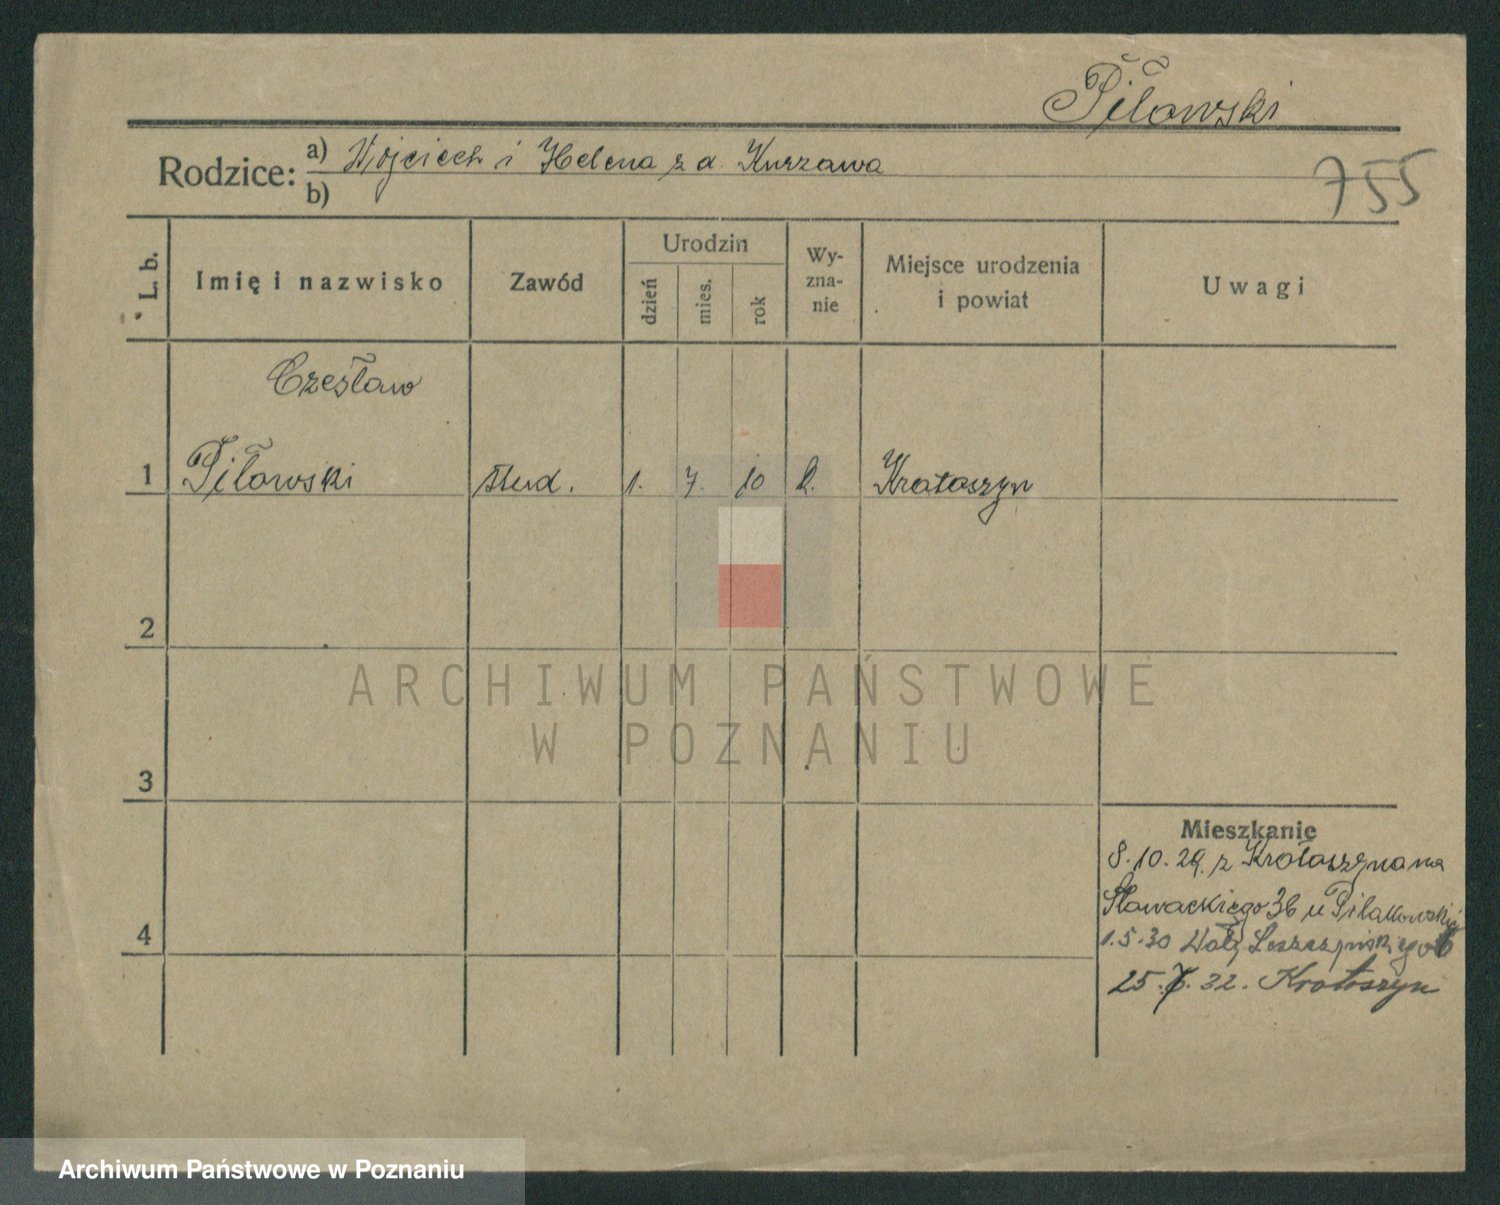 Piławski
Rodzice: a) Wojciech i Helena z d. Kurzawa
b)
755
L. b.
Imię i nazwisko
Zawód
Urodzin
dzień
mies.
rok
Wy-
zna-
nie
Miejsce urodzenia
i powiat
Uwagi
Czesław
1 Piławski stud. 1. 7. 10 Krotoszyn
2
ARCHIWUM PAŃSTWOWE
W POZNANIU
3
Mieszkanie
8.10.29. z Krotoszyna na
Słowackiego 36 u Pilakowskiej
4
1.5.30 Wały Leszczyńskiego 6
25. 32. Krotoszyn
Archiwum Państwowe w Poznaniu